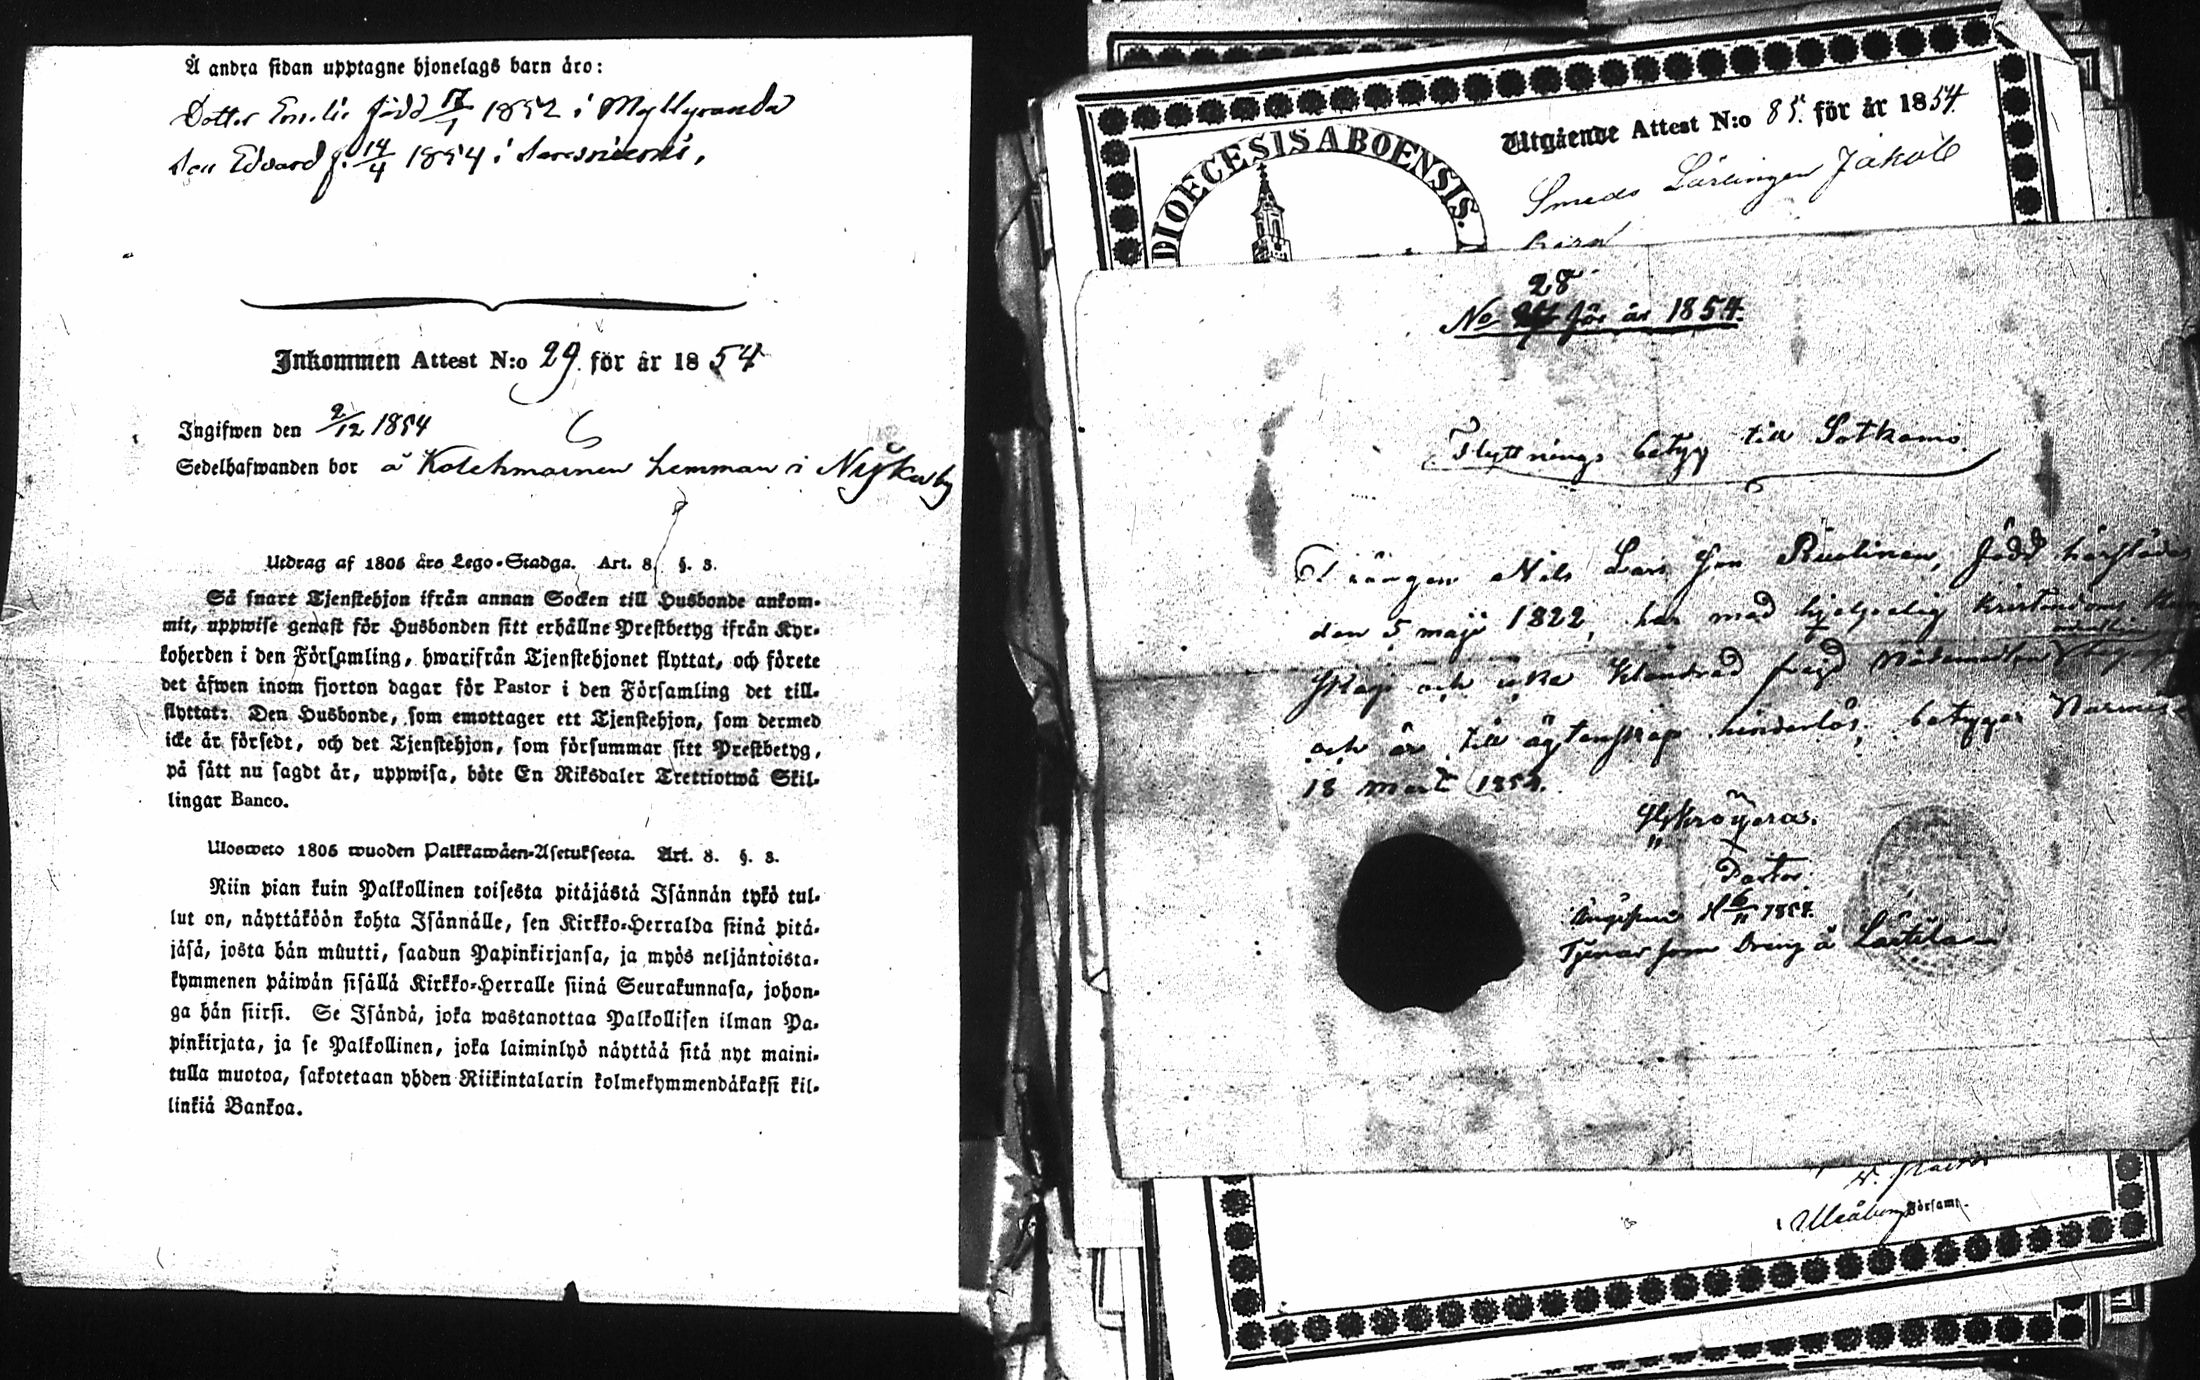 Å andra sidan upptagne hjonelags barn äro:
Dotter Emilie född 17/1 1852 i Myllyranda
Son Edvard f. 14/4 1854 i
Inkommen Attest N:o 29. för år 1854
Ingifwen den 2/12 1854
Sedelhafwanden bor å Kolehmainen hemman i Nujkaby
Utdrag af 1805 års Lego-Stadga. Art. 8. §. 3.
Så snart Tjenstehjon ifrån annan Socken till Husbonde ankom-
mit, uppwise genast för Husbonden sitt erhållne Prestbetyg ifrån Kyr-
koherden i den Församling, hwarifrån Tjenstehjonet flyttat, och förete
det äfwen inom fjorton dagar för Pastor i den Församling det till-
flyttat: Den Husbonde, som emottager ett Tjenstehjon, som dermed
icke är försedt, och det Tjenstehjon, som försummar sitt Prestbetyg,
på sätt nu sagdt är, uppwisa, böte En Riksdaler Trettiotwå Skil-
lingar Banco.
Ulosweto 1805 wuoden Palkkawäen-Asetuksesta. Art. 8. §. 3.
Niin pian kuin Palkollinen toisesta pitäjästä Isännän tykö tul-
lut on, näyttäköön kohta Isännälle, sen Kirkko-Herralda siinä pitä-
jäsä, josta hän muutti, saadun Papinkirjansa, ja myös neljäntoista-
kymmenen päiwän sisällä Kirkko-Herralle siinä Seurakunnasa, johon-
ga hän siirsi. Se Isändä, joka wastanottaa Palkollisen ilman Pa-
pinkirjata, ja se Palkollinen, joka laiminlyö näyttää sitä nyt maini-
tulla muotoa, sakotetaan yhden Riikintalarin kolmekymmendäkaksi kil-
linkiä Bankoa.
DIOECESIS ABOENSIS.
Utgående Attest N:o 85. för år 1854
Smeds Lärlingen Jakob
28
No för år 1854.
Flyttnings betyg till Sotkamo
Drängen Nils Lars Son Ruotinen, född härstädes
den 5 maji 1822, har med hjelpelig kristendoms
skap och icke klandrad frejd Nådemedlen
och är till ägtenskap hinderlös; betygar Nurmis
18 mart 1854.
Pastor.
6/11 1854.
Tjenar som Dreng å Lastila
Uleåborg Församl.